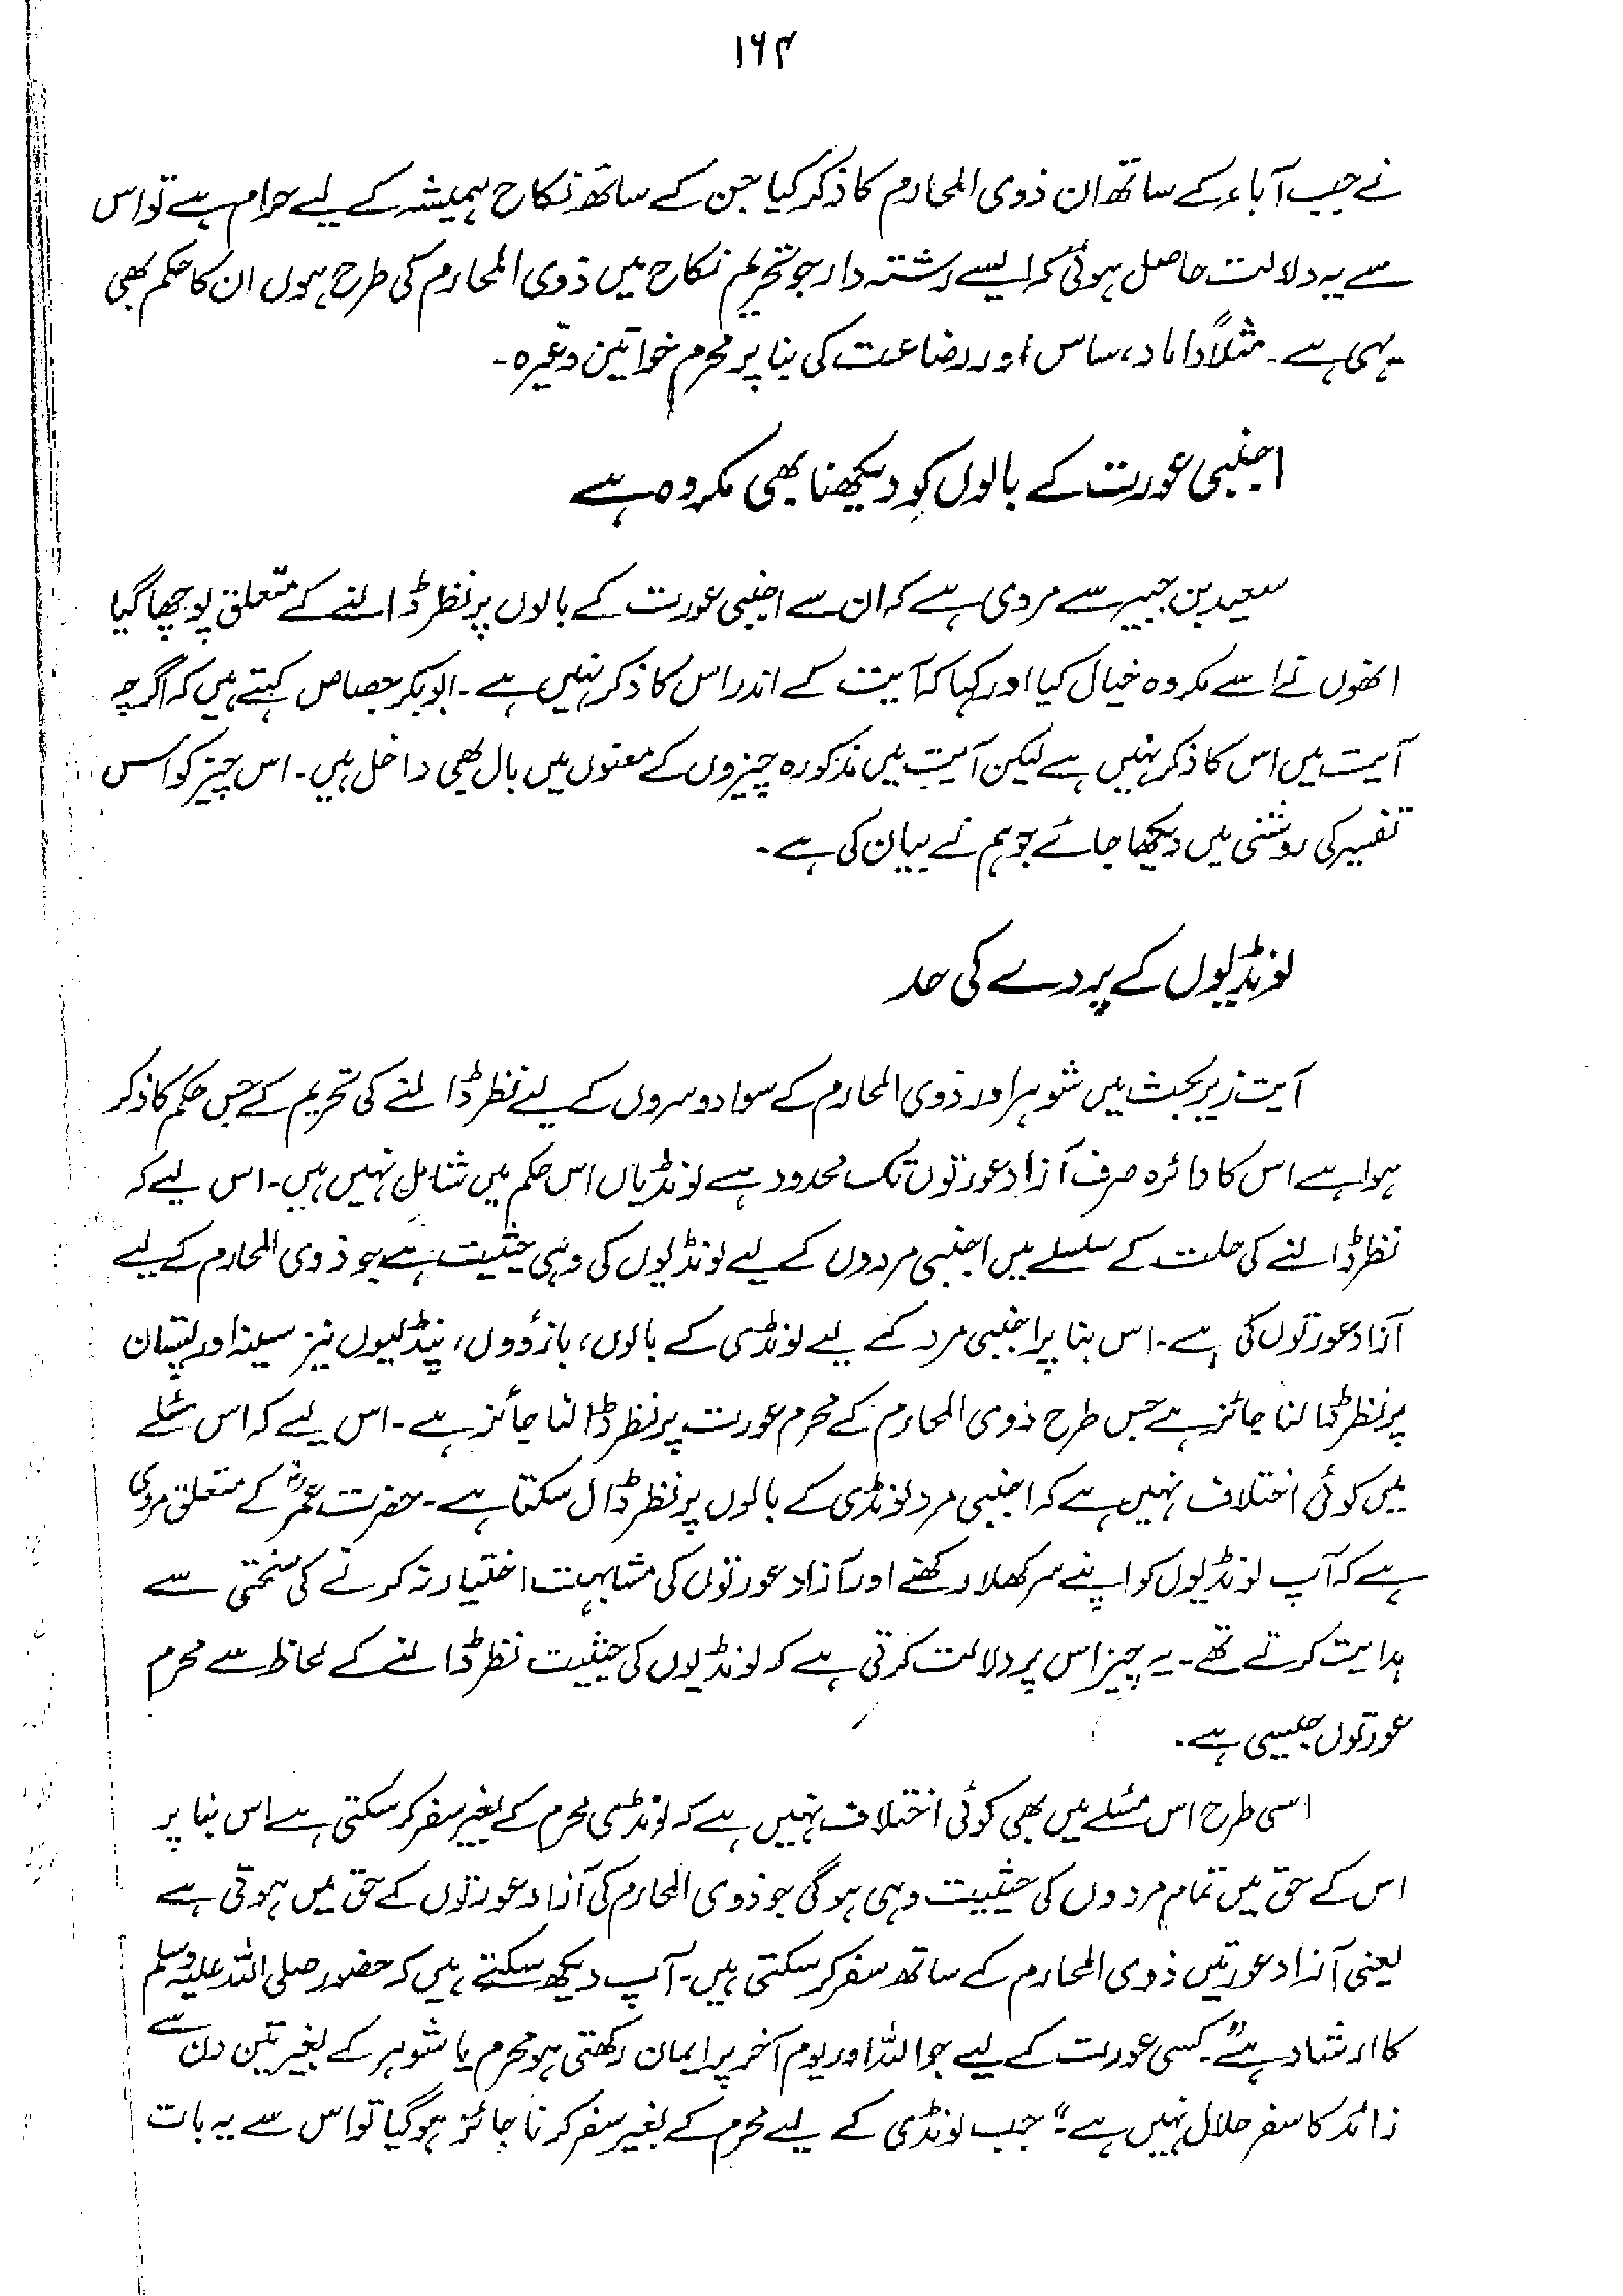 ۱۶۴
نے جب آباء کے ساتھ ان ذوی المحارم کا ذکر کیا جن کے ساتھ نکاح ہمیشہ کے لیے حرام ہے تو اس
سے یہ دلالت حاصل ہوئی کہ ایسے رشتہ دار جو تحریم نکاح میں ذوی المحارم کی طرح ہوں ان کا حکم بھی
یہی ہے۔ مثلاً داماد، ساس اور رضاعت کی بنا پر محرم خواتین وغیرہ۔
اجنبی عورت کے بالوں کو دیکھنا بھی مکروہ ہے
سعید بن جبیر سے مروی ہے کہ ان سے اجنبی عورت کے بالوں پر نظر ڈالنے کے متعلق پوچھا گیا
انھوں نے اسے مکروہ خیال کیا اور کہا کہ آیت کے اندر اس کا ذکر نہیں ہے۔ ابوبکر جصاص کہتے ہیں کہ اگرچہ
آیت میں اس کا ذکر نہیں ہے لیکن آیت میں مذکورہ چیزوں کے معنوں میں بال بھی داخل ہیں۔ اس چیز کو اس
تفسیر کی روشنی میں دیکھا جائے جو ہم نے بیان کی ہے۔
لونڈیوں کے پردے کی حد
آیت زیر بحث میں شوہر اور ذوی المحارم کے سوا دوسروں کے لیے نظر ڈالنے کی تحریم کے جس حکم کا ذکر
ہوا ہے اس کا دائرہ صرف آزاد عورتوں تک محدود ہے لونڈیاں اس حکم میں شامل نہیں ہیں۔ اس لیے کہ
نظر ڈالنے کی حلت کے سلسلے میں اجنبی مردوں کے لیے لونڈیوں کی وہی حیثیت ہے جو ذوی المحارم کے لیے
آزاد عورتوں کی ہے۔ اس بنا پر اجنبی مرد کے لیے لونڈی کے بالوں، بازؤوں، پنڈلیوں نیز سینہ اور پستان
پر نظر ڈالنا جائز ہے جس طرح ذوی المحارم کے محرم عورت پر نظر ڈالنا جائز ہے۔ اس لیے کہ اس مسئلے
میں کوئی اختلاف نہیں ہے کہ اجنبی مرد لونڈی کے بالوں پر نظر ڈال سکتا ہے۔ حضرت عمرؓ کے متعلق مروی
ہے کہ آپ لونڈیوں کو اپنے سر کھلا رکھنے اور آزاد عورتوں کی مشابہت اختیار نہ کرنے کی سختی سے
ہدایت کرتے تھے۔ یہ چیز اس پر دلالت کرتی ہے کہ لونڈیوں کی حیثیت نظر ڈالنے کے لحاظ سے محرم
عورتوں جیسی ہے۔
اسی طرح اس مسئلے میں بھی کوئی اختلاف نہیں ہے کہ لونڈی محرم کے بغیر سفر کر سکتی ہے اس بنا پر
اس کے حق میں تمام مردوں کی حیثیت وہی ہوگی جو ذوی المحارم کی آزاد عورتوں کے حق میں ہوتی ہے
یعنی آزاد عورتیں ذوی المحارم کے ساتھ سفر کر سکتی ہیں۔ آپ دیکھ سکتے ہیں کہ حضور صلی اللہ علیہ وسلم
کا ارشاد ہے "۔ کسی عورت کے لیے جو اللہ اور یوم آخر پر ایمان رکھتی ہو محرم یا شوہر کے بغیر تین دن سے
زائد کا سفر حلال نہیں ہے۔" جب لونڈی کے لیے محرم کے بغیر سفر کرنا جائز ہو گیا تو اس سے یہ بات